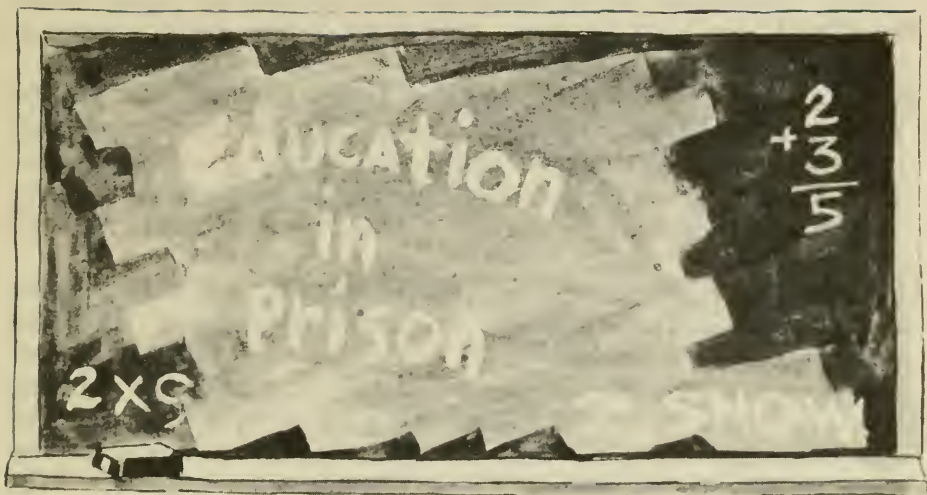 Education
in
Prison
2
+ 3
5
2x9
SHOW